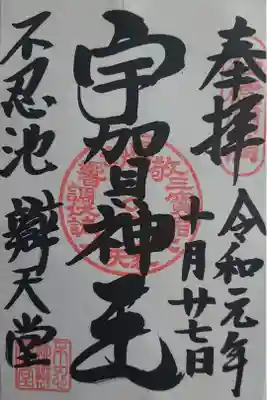 奉拝
令和元年
十月廿七日
宇賀神王
不忍池
辯天堂